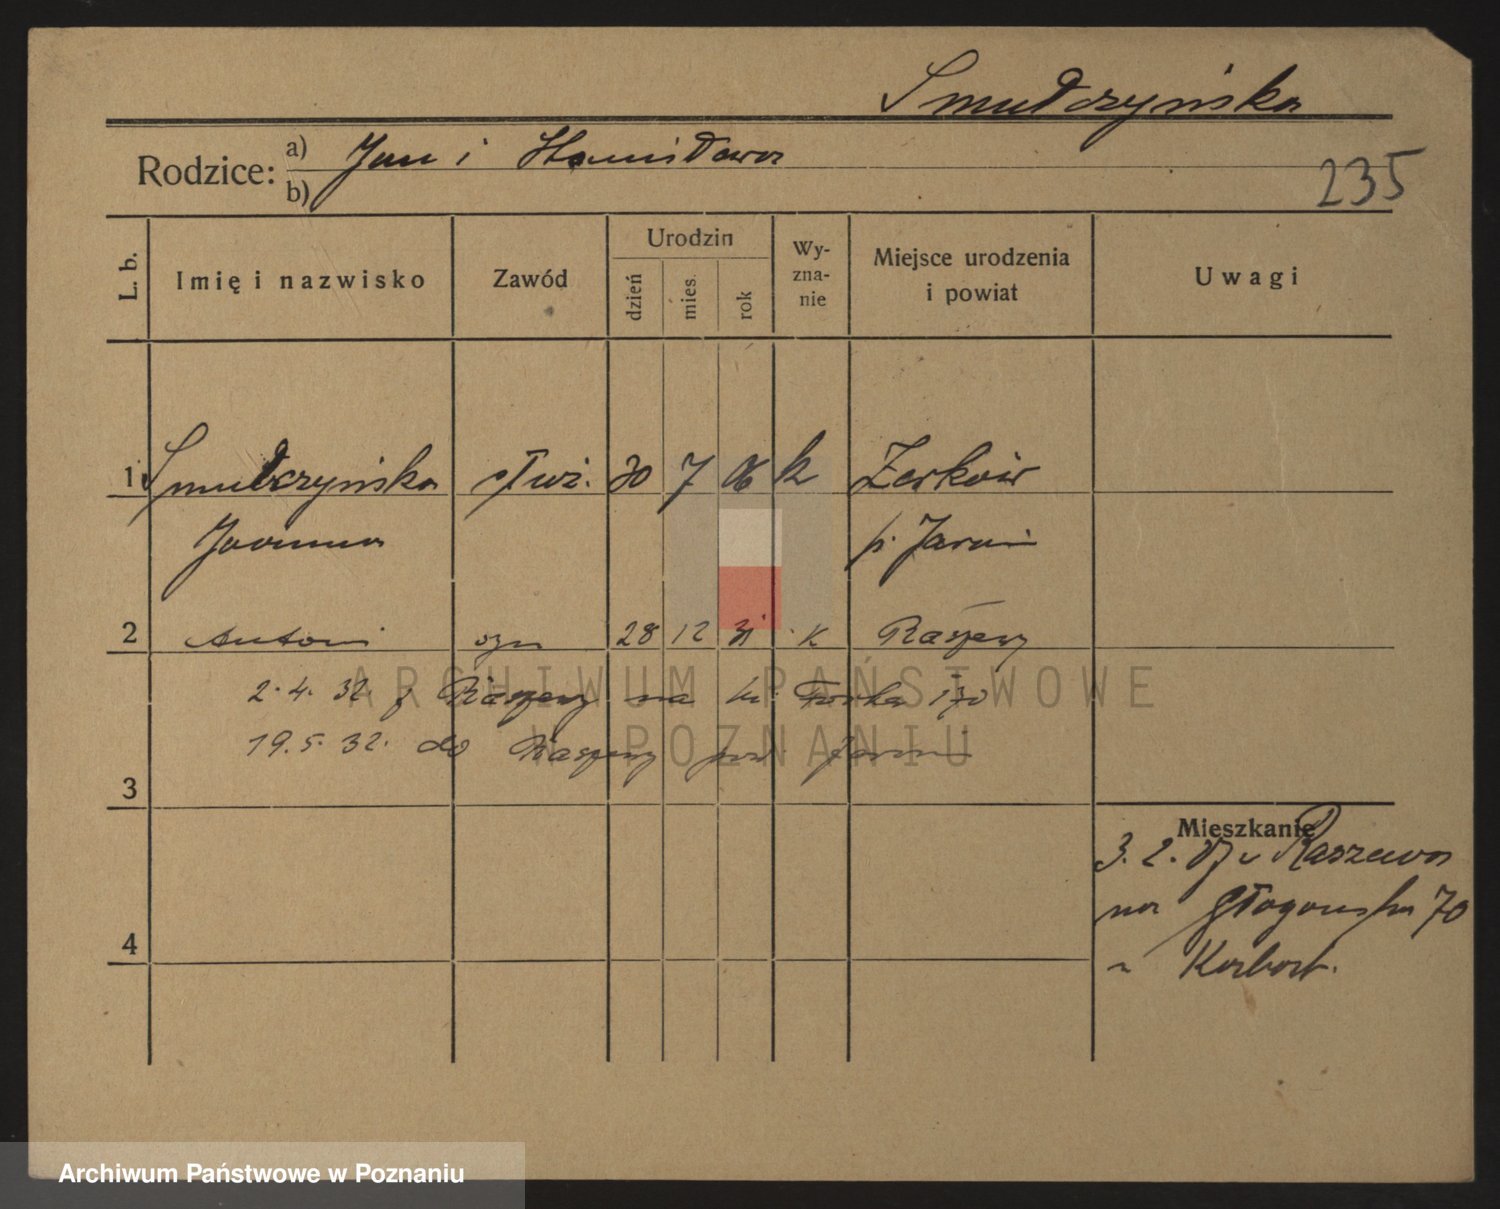 Smułczyńska
Rodzice: a) Jan i Stanisława
b)
235
L. b.
Imię i nazwisko
Zawód
Urodzin
dzień
mies.
rok
Wy-
zna-
nie
Miejsce urodzenia
i powiat
Uwagi
1 Smułczyńska służ. 30 7 06 k Żerków
Joanna p. Jarocin
2 Antoni syn 28 12 31 k Raszewy
2.4.32. z Raszewy na ul. 170
19.5.32. do Raszewy pow. Jarocin
3
Mieszkanie
3. 2. z Raszewa
na Głogowska 70
4
u
ARCHIWUM PAŃSTWOWE
W POZNANIU
Archiwum Państwowe w Poznaniu